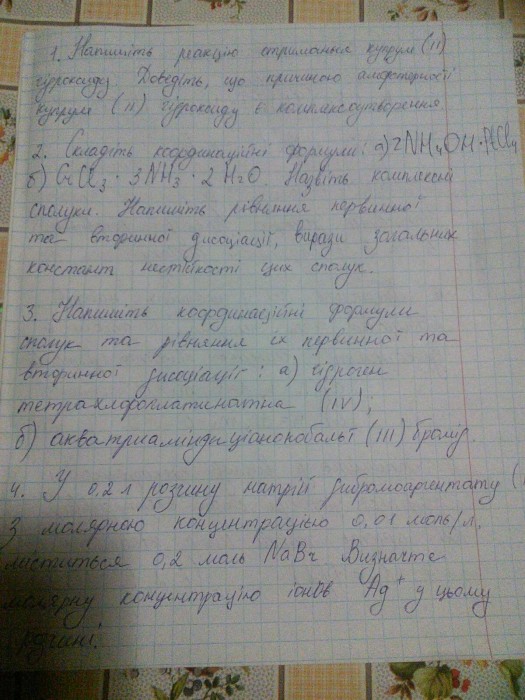 1. Напишіть реакцію отримання купрум (II)
гідроксиду. Доведіть, що причиною амфотерності
купрум (II) гідроксиду є комплексоутворення
2. Складіть координаційні формули: а) 2NH₄OH·PtCl₄
б) CrCl₃ · 3NH₃ · 2H₂O. Назвіть комплексні
сполуки. Напишіть рівняння первинної
та вторинної дисоціації, вирази загальних
констант нестійкості цих сполук.
3. Напишіть координаційні формули
сполук та рівняння їх первинної та
вторинної дисоціації: а) гідроген
(IV);
б) акватриаміндиціанокобальт (III) бромід.
4. У 0,2 л розчину натрій дибромоаргентату (
з молярною концентрацією 0,01 моль/л,
міститься 0,2 моль NaBr Визначте
молярну концентрацію іонів Ag⁺ у цьому
розчині.